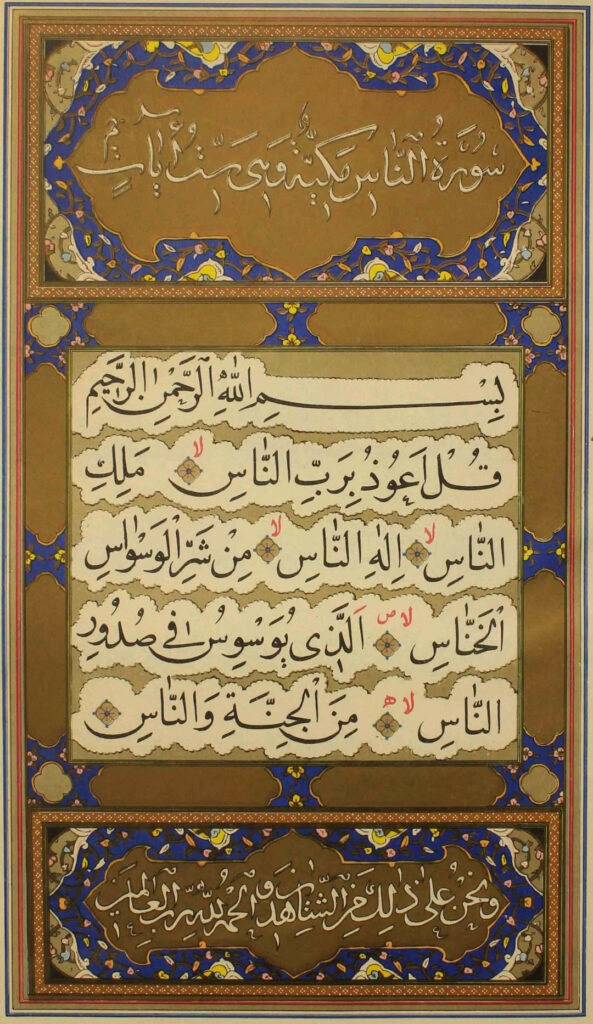 سُورَةُ النَّاسِ مَكِّيَّةٌ وَهِىَ سِتُّ اٰيَاتٍ
بِسْمِ اللّٰهِ الرَّحْمٰنِ الرَّحِيمِ
قُلْ اَعُوذُ بِرَبِّ النَّاسِ ۙ مَلِكِ
النَّاسِ ۙ اِلٰهِ النَّاسِ ۙ مِنْ شَرِّ الْوَسْوَاسِ
الْخَنَّاسِ ۙ ص اَلَّذِى يُوَسْوِسُ فِى صُدُورِ
النَّاسِ ۙ ه مِنَ الْجِنَّةِ وَالنَّاسِ
وَنَحْنُ عَلٰى ذٰلِكَ مِنَ الشَّاهِدِينَ وَالْحَمْدُ لِلّٰهِ رَبِّ الْعَالَمِينَ